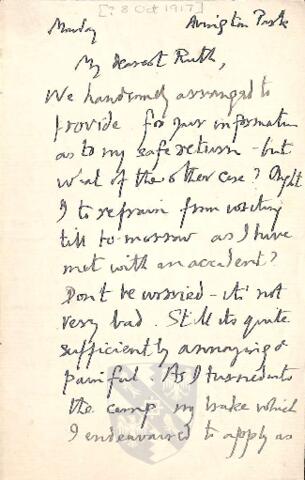 [? 8 Oct 1917]
Monday Avington Park
My dearest Ruth,
We handsomely arranged to
provide for your information
as to my safe return - but
what of the other case? Ought
I to refrain from writing
till to-morrow as I have
met with an accident?
Don't be worried - it's not
very bad. Still its quite
sufficiently annoying &
painful As I turned into
the camp my brake which
I endeavoured to apply as